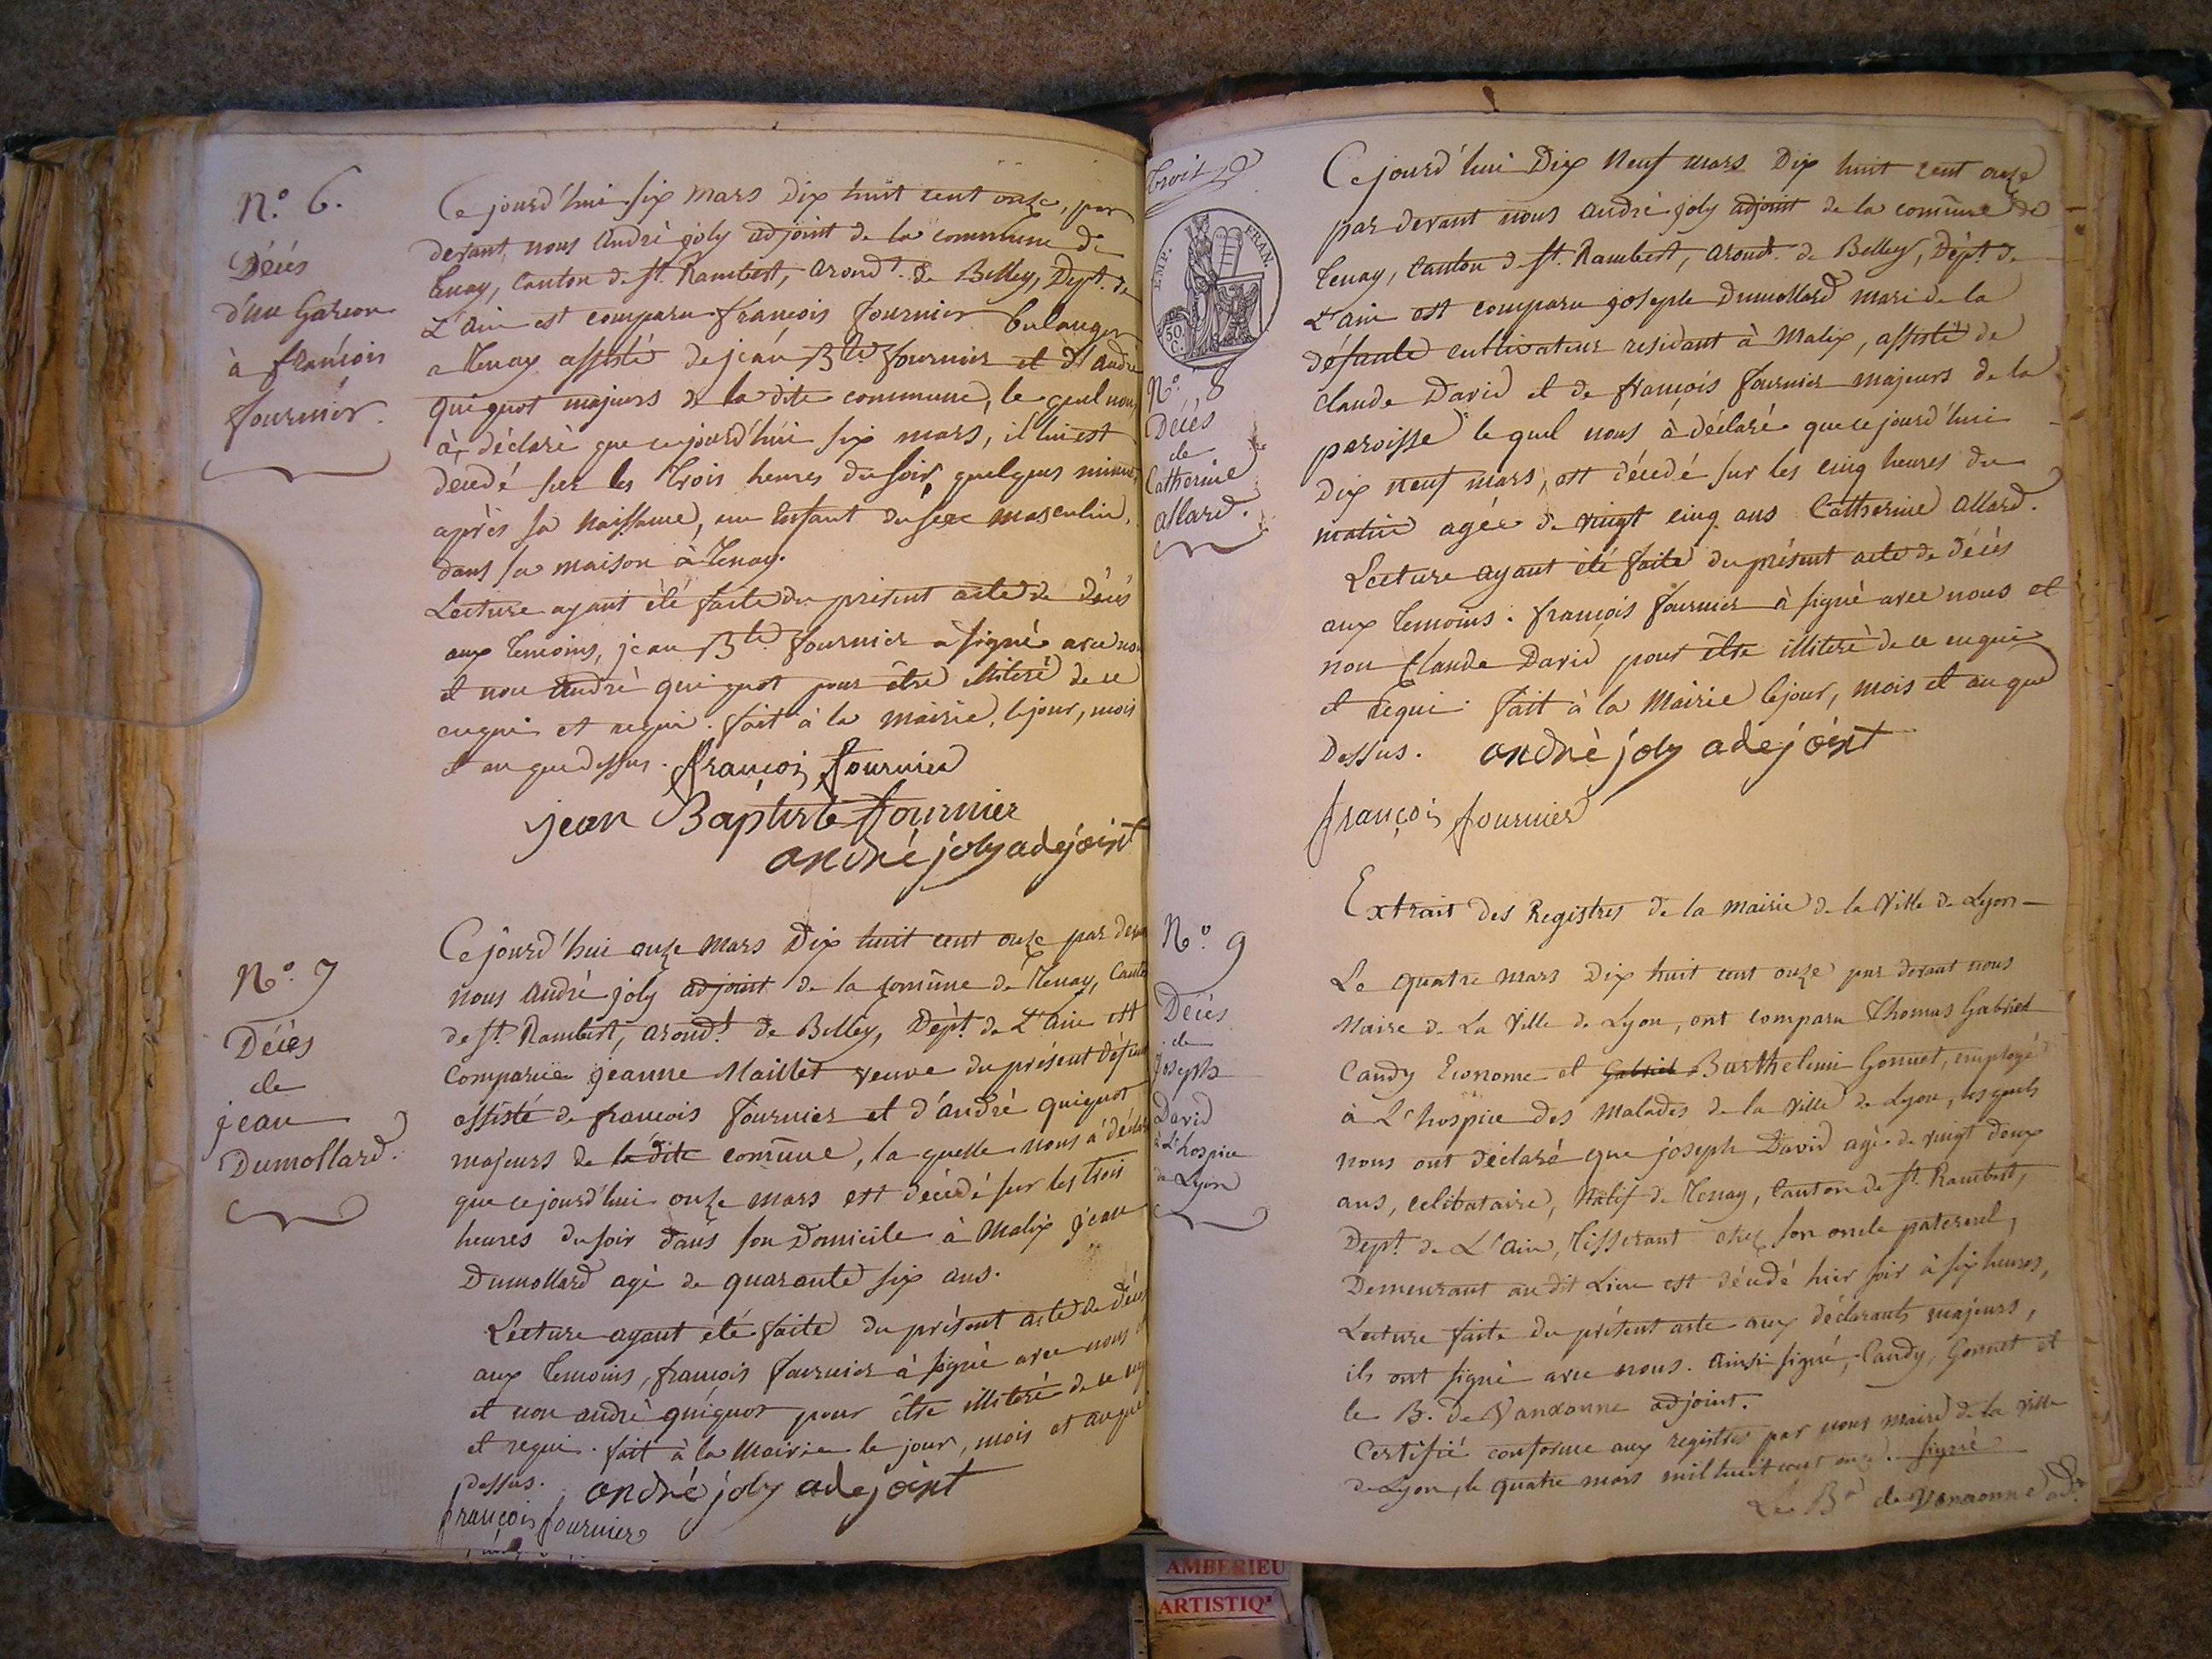 N.º 6.
Décés
d'un Garçon
à françois
fournier.
Ce jourd'hui six mars dix huit cent onze, par
devant nous André joly adjoint de la commune de
Tenay, Canton de St. Rambert, arondt. de Belley, Dept. de
L'Ain est comparu françois fournier bulanger
a Tenay assisté de jean Bte fournier et d'andré
quiquot majeurs de la dite commune, le quel nous
à déclaré que cejourd'hui six mars, il lui est
décédé sur les trois heures du soir, quelques minutes
après sa naissance, un Enfant du sexe masculin,
dans sa maison à Tenay.
Lecture ayant été faite du présent acte de décés
aux temoins, jean Bte fournier a signé avec nous
et non André quiquot pour être illiteré de ce
enquis et requis. fait à la mairie, le jour, mois
et an que dessus. françois fournier
jean Baptiste fournier
andré joly adejoint
N.º 7
Décès
de
jean
Dumollard.
Ce jourd'hui onze mars dix huit cent onze par devant
nous andré joly adjoint de la comũne de Tenay, Canton
de St. Rambert, arondt. de Belley, Dépt. de L'Ain est
comparuë jeanne Maillet veuve du présent défunt
assisté de francois fournier et d'andré quiquot
majeurs de la dite comũne, la quelle nous à déclaré
que cejourd'hui onze mars est décédé sur les trois
heures du soir dans son Domicile à Malix jean
Dumollard agé de quarante six ans.
Lecture ayant été faite du présent acte de décés
aux temoins, françois fournier à signé avec nous et
et non andré quiquot pour être illiteré de ce enquis
et requi. fait à la Mairie le jour, mois et an que
dessus. andré joly adejoint
françois fournier
trois
EMP. FRAN.
50 C.
N.º 8
Décés
de
Catherine
allard.
Ce jourd'hui Dix Neuf mars Dix huit cent onze
par devant nous André joly adjoint de la comũne de
Tenay, Canton de St. Rambert, arondt. de Belley, Dépt. de
L'Ain est comparu joseph Dumollard mari de la
défunte cultivateur residant à Malix, assisté de
Claude David et de françois fournier majeurs de la
paroisse le quel nous à déclaré que cejourd'hui
dix neuf mars, est décedé sur les cinq heures du
matin agée de vingt cinq ans Catherine allard.
Lecture ayant été faite du présent acte de décès
aux temoins. françois fournier à signé avec nous et
non Claude David pour être illiteré de ce enquis
et requi. fait à la Mairie le jour, mois et an que
Dessus. andrè joly adejoint
françois fournier
Extrait des Registres de la mairie de la Ville de Lyon
N.º 9
Décés
de
Joseph
David
à L'hospice
de Lyon
Le quatre mars dix huit cent onze par devant nous
Maire de La Ville de Lyon, ont comparu Thomas Gabriel
Candy Econome et Gabriel Barthelemi Gonnet, employé
à L'hospice des Malades de la Ville de Lyon, les quels
nous ont déclaré que joseph David agé de vingt deux
ans, celibataire, Natif de Tenay, Canton de St. Rambert,
Dept. de L'Ain, tisserant chez son oncle paternel,
Demeurant au dit Lieu est décédé hier soir à six heures,
Lecture faite du présent acte aux déclarants majeurs,
ils ont signé avec nous. ainsi signé, Candy, Gonnet et
le B. de Vauxonne adjoint.
Certifié conforme aux registres par nous maire de la Ville
de Lyon, le quatre mars mil huit cent onze. signé
Le Bn de Vauxonne adjt.
AMBERIEU
ARTISTIQ